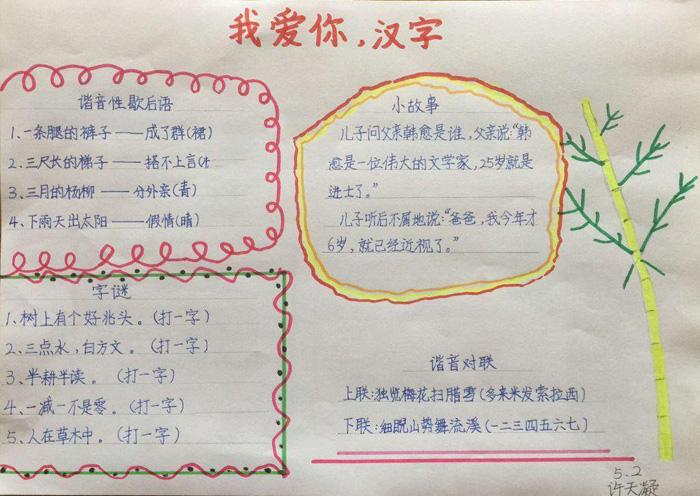 我爱你,汉字
谐音性歇后语
1、一条腿的裤子——成了群(裙)
2、三尺长的梯子——搭不上言(
3、三月的杨柳——分外亲(青)
4、下雨天出太阳——假情(晴)
小故事
儿子问父亲韩愈是谁,父亲说:“韩
愈是一位伟大的文学家,25岁就是
进士了。”
儿子听后不屑地说:“爸爸,我今年才
6岁,就已经近视了。”
字谜
1、树上有个好兆头。(打一字)
2、三点水,白方文。(打一字)
3、半耕半读。(打一字)
4、一减一不是零。(打一字)
5、人在草木中。(打一字)
谐音对联
上联:独览梅花扫腊雪(多来米发索拉西)
下联:细睨山势舞流溪(一二三四五六七)
5.2
许天凝